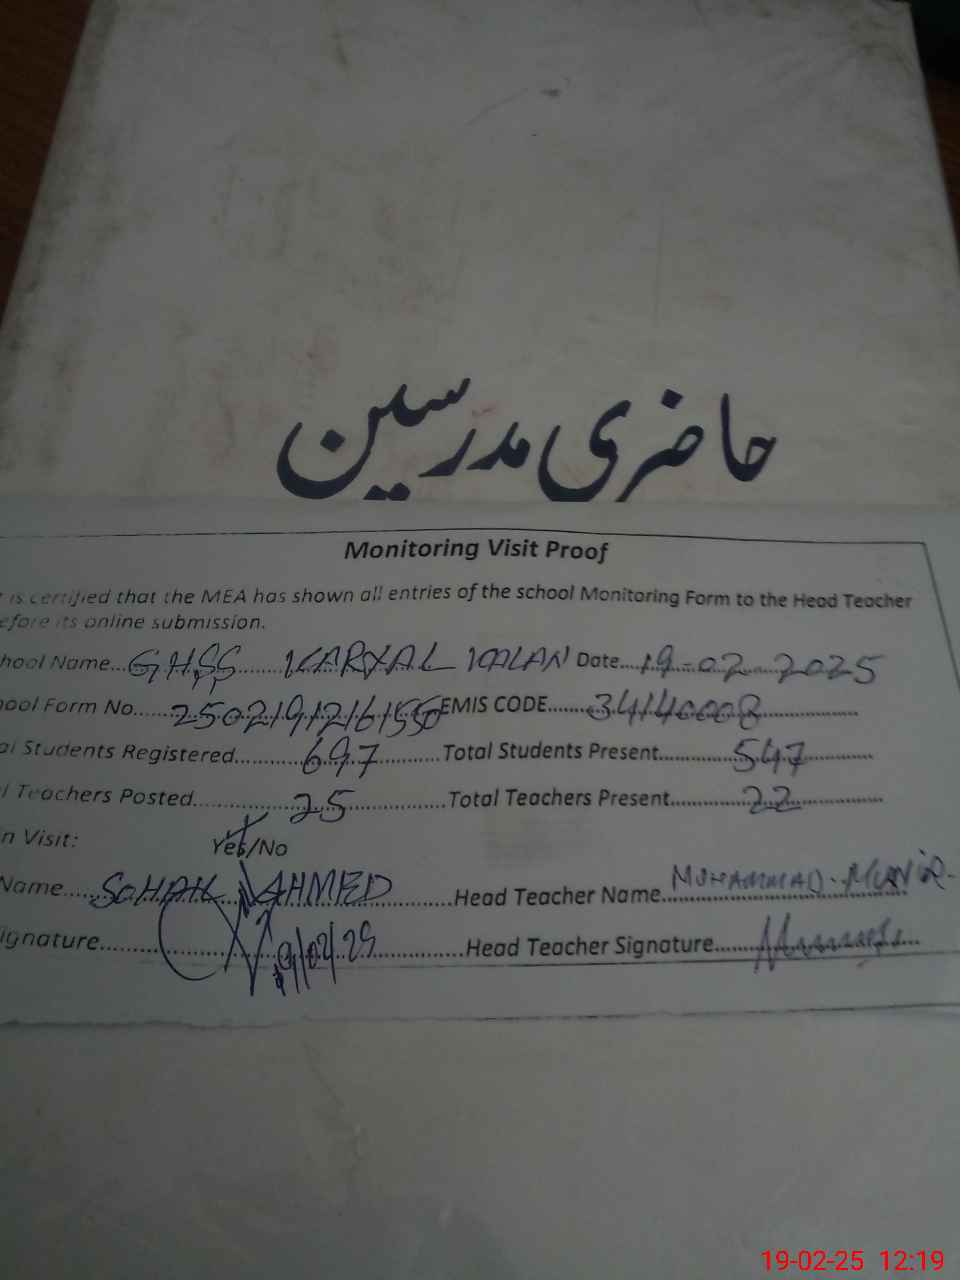 حاضری مدرسین
Monitoring Visit Proof
is certified that the MEA has shown all entries of the school Monitoring Form to the Head Teacher
efore its online submission.
hool Name...GHSS KARYAL KALAN Date...19-02-2025
ool Form No.....250219121615 EMIS CODE.......34140008
al Students Registered...........697 Total Students Present............547
l Teachers Posted...............25 Total Teachers Present..........22
n Visit: Yes/No
Name.....SOHAIL AHMED Head Teacher Name...MUHAMMAD MUNIR.
ignature...........19/02/25 Head Teacher Signature.......
19-02-25 12:19